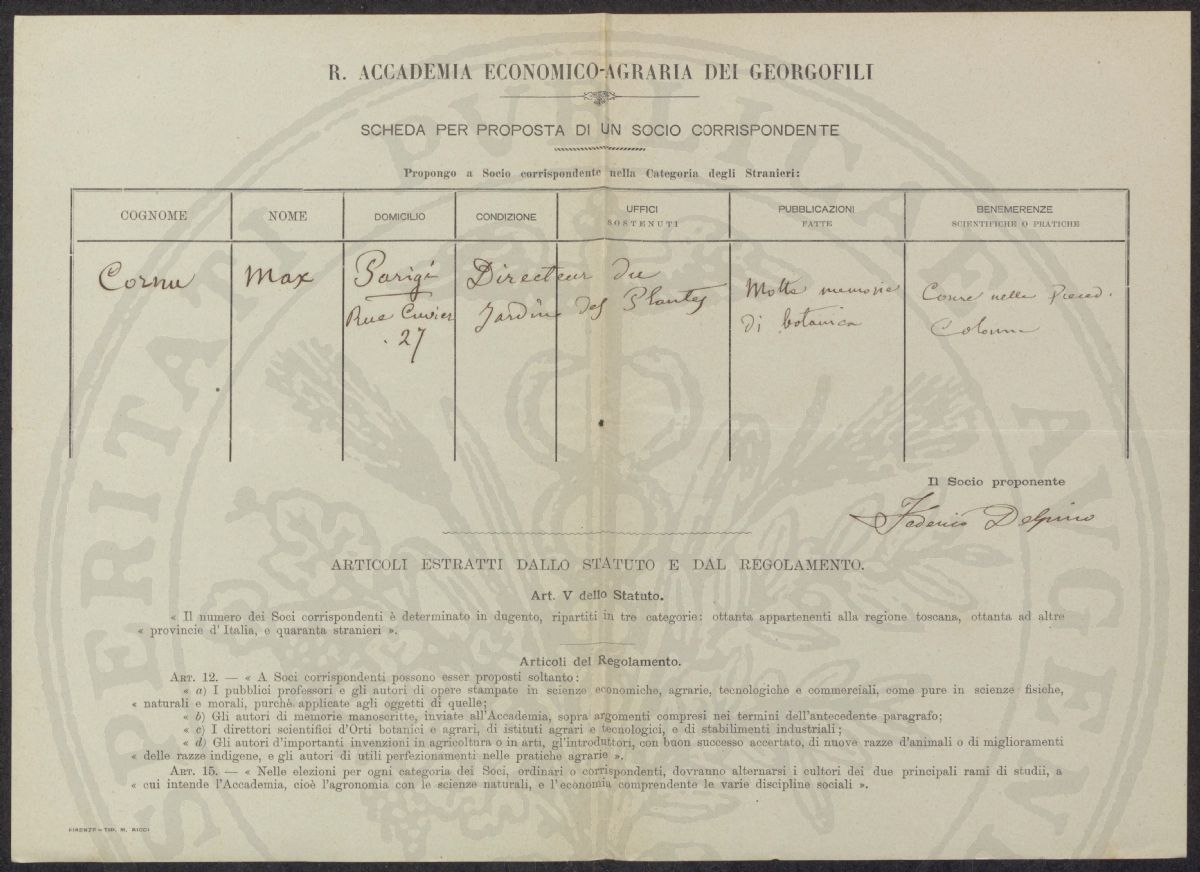 R. ACCADEMIA ECONOMICO-AGRARIA DEI GEORGOFILI
SCHEDA PER PROPOSTA DI UN SOCIO CORRISPONDENTE
Propongo a Socio corrispondente nella Categoria degli Stranieri:
COGNOME NOME DOMICILIO CONDIZIONE UFFICI SOSTENUTI PUBBLICAZIONI FATTE BENEMERENZE SCIENTIFICHE O PRATICHE
Cornu Max Parigi Directeur du
Rue Cuvier Jardin des Plantes
27
Molte memorie
di botanica
Come nella Preced.
Colonna
Il Socio proponente
Federico Delpino
ARTICOLI ESTRATTI DALLO STATUTO E DAL REGOLAMENTO.
Art. V dello Statuto.
« Il numero dei Soci corrispondenti è determinato in dugento, ripartiti in tre categorie: ottanta appartenenti alla regione toscana, ottanta ad altre
« provincie d'Italia, e quaranta stranieri ».
Articoli del Regolamento.
ART. 12. — « A Soci corrispondenti possono esser proposti soltanto:
« a) I pubblici professori e gli autori di opere stampate in scienze economiche, agrarie, tecnologiche e commerciali, come pure in scienze fisiche,
« naturali e morali, purchè applicate agli oggetti di quelle;
« b) Gli autori di memorie manoscritte, inviate all'Accademia, sopra argomenti compresi nei termini dell'antecedente paragrafo;
« c) I direttori scientifici d'Orti botanici e agrari, di istituti agrari e tecnologici, e di stabilimenti industriali;
« d) Gli autori d'importanti invenzioni in agricoltura o in arti, gl'introduttori, con buon successo accertato, di nuove razze d'animali o di miglioramenti
« delle razze indigene, e gli autori di utili perfezionamenti nelle pratiche agrarie ».
ART. 15. — « Nelle elezioni per ogni categoria dei Soci, ordinari o corrispondenti, dovranno alternarsi i cultori dei due principali rami di studii, a
« cui intende l'Accademia, cioè l'agronomia con le scienze naturali, e l'economia comprendente le varie discipline sociali ».
FIRENZE — TIP. M. RICCI
PROSPERITATI PVBLICAE AVGENDAE